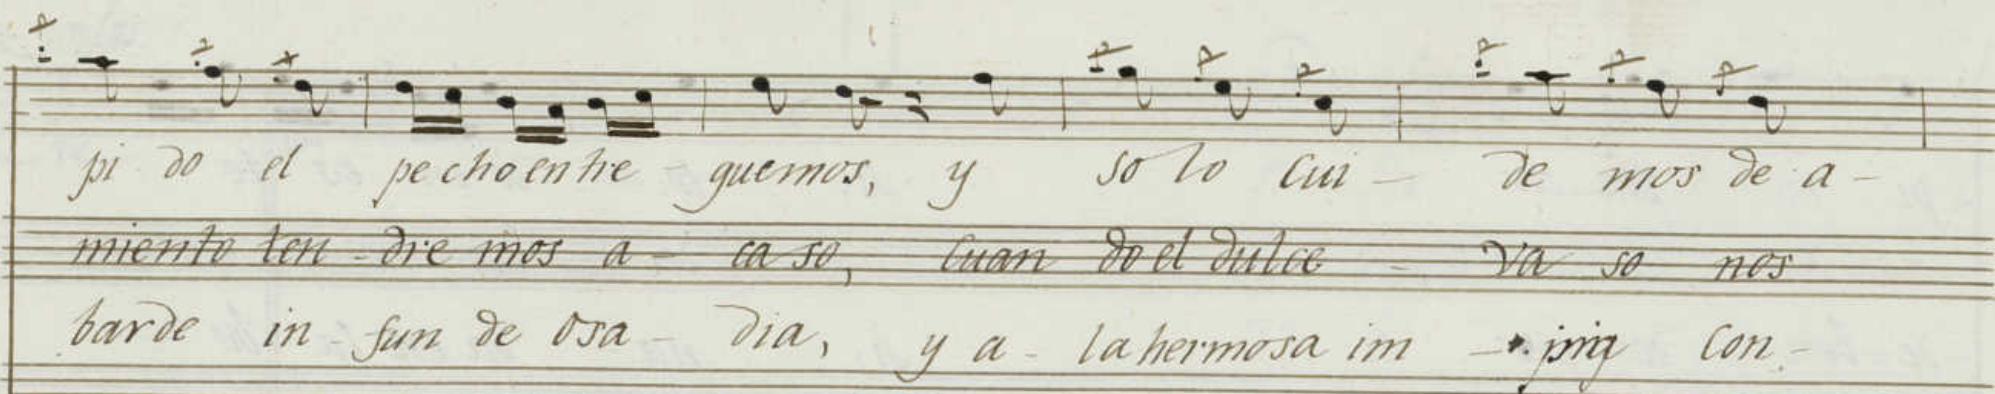 pi do el pe cho en tre - guemos, y so lo cui - de mos de a -
miento ten - dre mos a - ca so, cuan do el dulce - va so nos
barde in - fun de osa - dia, y a - la hermosa im - con -